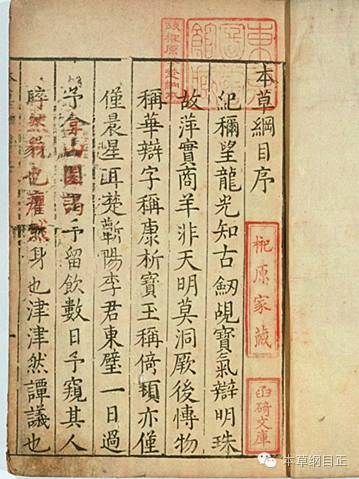 本草綱目序
紀稱望龍光知古劒覘寶氣辯明珠
故萍實商羊非天明莫洞厥後博物
稱華辯字稱康析寶王稱倚頓亦僅
僅晨星耳楚蘄陽李君東璧一日過
予弇山園謁予留飲數日予窺其人
睟然貌也癯然身也津津然譚議也
原家藏
文庫
本草纲目正